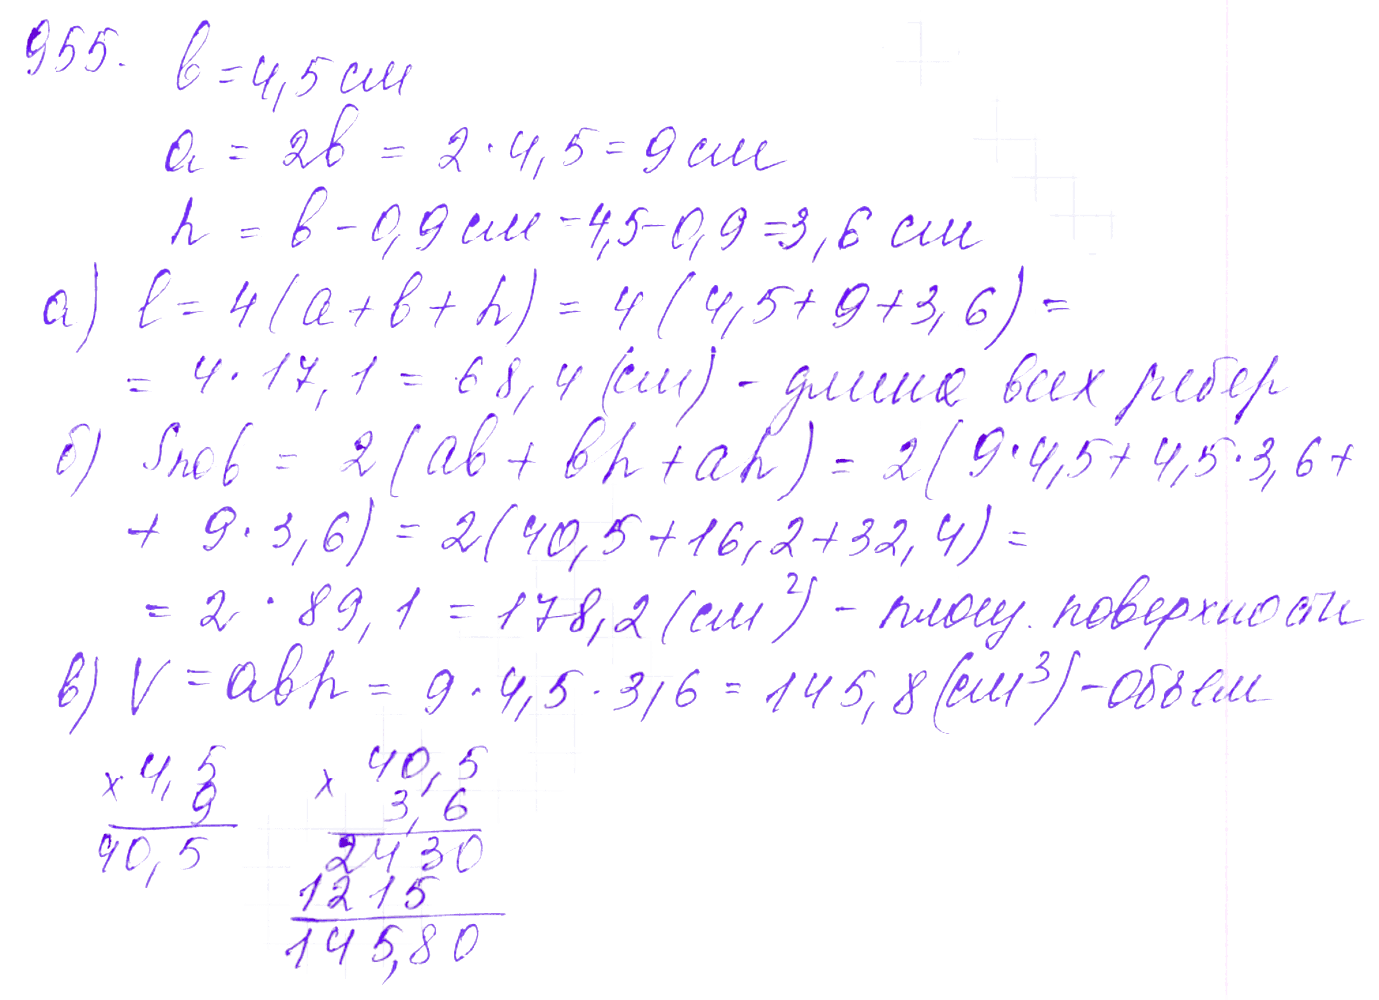 955. в = 4,5 см
a = 2в = 2 · 4,5 = 9 см
h = в - 0,9 см = 4,5 - 0,9 = 3,6 см
а) l = 4(a + в + h) = 4(4,5 + 9 + 3,6) =
= 4 · 17,1 = 68,4 (см) - длина всех ребер
б) Sпов = 2(ав + вh + ah) = 2(9 · 4,5 + 4,5 · 3,6 +
+ 9 · 3,6) = 2(40,5 + 16,2 + 32,4) =
= 2 · 89,1 = 178,2 (см²) - площ. поверхности
в) V = aвh = 9 · 4,5 · 3,6 = 145,8 (см³) - объем
× 4,5
9
40,5
× 40,5
3,6
2430
1215
145,80